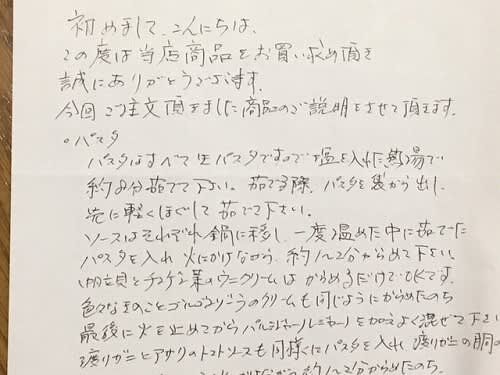 初めまして、こんにちは、
この度は当店商品をお買い求め頂き
誠にありがとうございます。
今回ご注文頂きました商品のご説明をさせて頂きます。
○パスタ
パスタはすべて生パスタですので塩を入れた熱湯で
約8分茹でて下さい。茹でる際、パスタを袋から出し、
先に軽くほぐして茹でて下さい。
ソースはそれぞれ鍋に移し、一度温めた中に茹でた
パスタを入れ火にかけながら、約1〜2分からめて下さい。
と のウニクリームはからめるだけでOKです。
色々なきのことゴルゴンゾーラのクリームも同じようにからめたのち
最後に火を止めてからパルミジャーノレジャーノを加えよく混ぜて下さい
渡りガニとアサリのトマトソースも同様にパスタを入れ、渡りガニの胴の
ながら約1〜2分からめたのち、